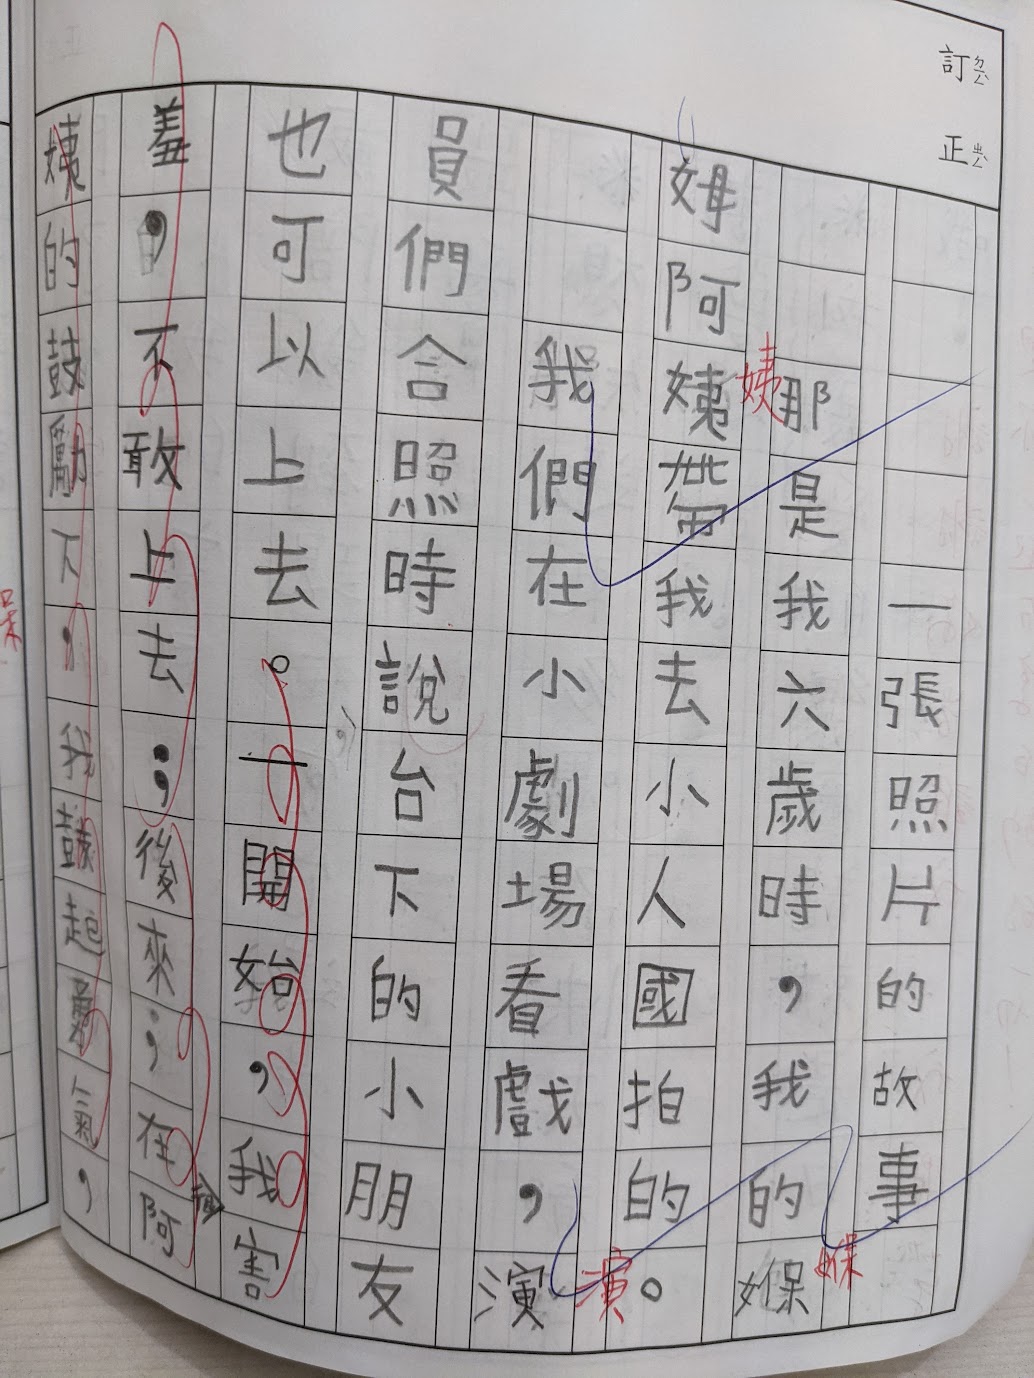 訂ㄉㄧㄥˋ正ㄓㄥˋ
一張照片的故事
那是我六歲時，我的媬
姨
媬
姆阿姨帶我去小人國拍的。
我們在小劇場看戲，演
演
員們合照時說台下的小朋友
也可以上去。一開始，我害
羞，不敢上去；後來，在阿
姨的鼓勵下，我鼓起勇氣，